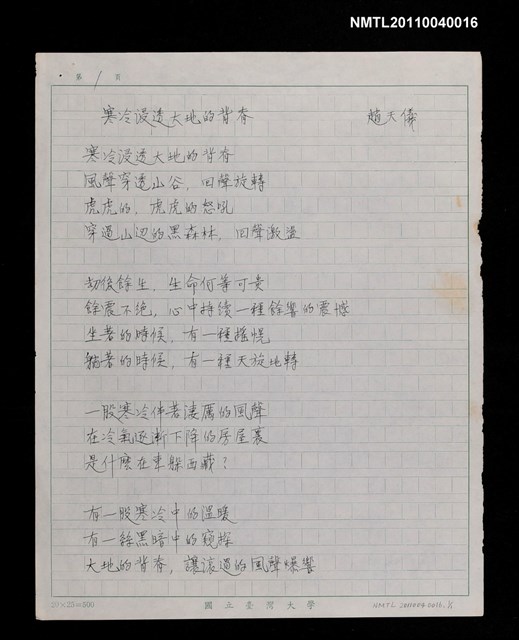 NMTL20110040016
第 1 頁
寒冷浸透大地的背脊 趙天儀
寒冷浸透大地的背脊
風聲穿透山谷，回聲旋轉
虎虎的，虎虎的怒吼
穿過山边的黑森林，回聲激盪
劫後餘生，生命何等可貴
餘震不绝，心中持續一種餘響的震憾
坐著的時候，有一種搖幌
躺著的時候，有一種天旋地轉
一股寒冷伴著淒厲的風聲
在冷氣逐漸下降的房屋裏
是什麼在東躲西藏？
有一股寒冷中的溫暖
有一絲黑暗中的窺探
大地的背脊，讓滾過的風聲爆響
20×25=500 國立臺灣大學 NMTL 20110040016